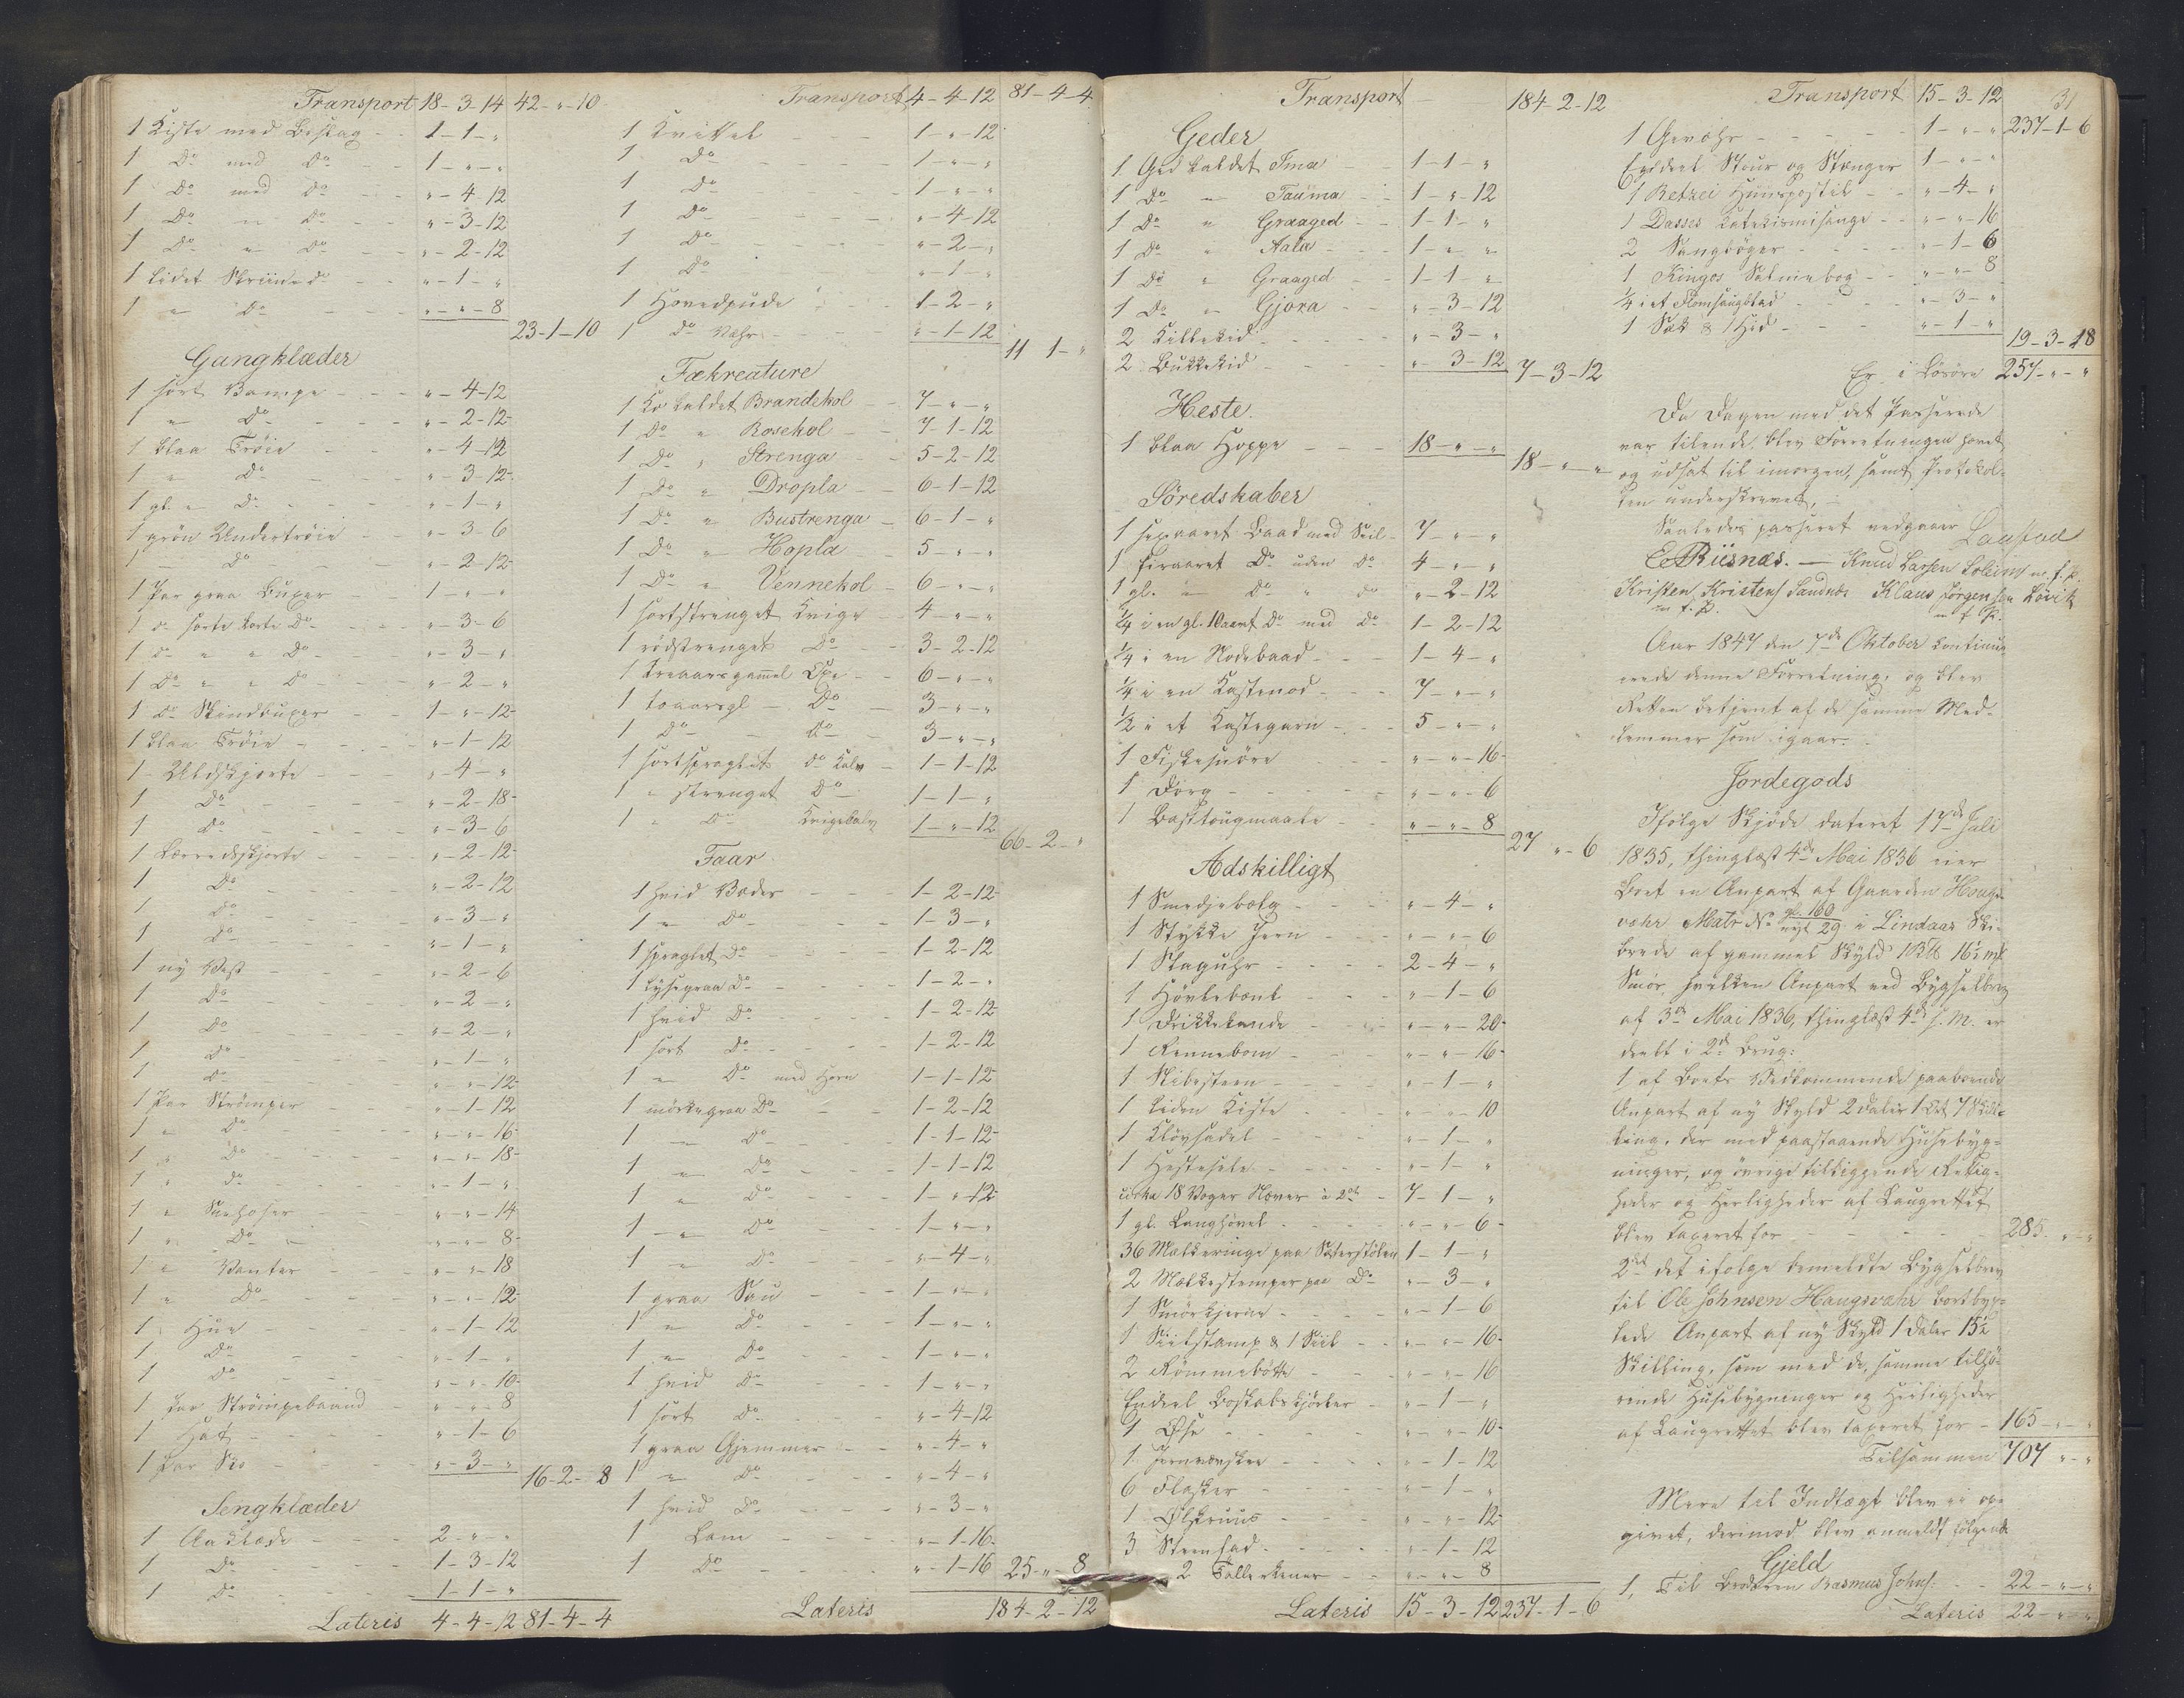 Transport 18-3-14 42-"-10
1 Kiste med Beslag 1-1-"
1 Do med Do 1-"-"
1 Do med Do "-4-12
1 Do " Do "-3-12
1 Do " Do "-2-12
1 lidet Skriin do "-1-"
1 " Do "-"-8
23-1-10
Gangklæder
1 sort Vampe "-4-12
1 " Do "-2-12
1 blaa Trøie "-4-12
1 " Do "-3-12
1 gl. " Do "-1-"
1 grøn Undertrøie "-3-6
1 — Do "-2-12
1 Par graa Buxer 1-"-"
1 do sorte korte Do "-3-6
1 do " " Do "-3-"
1 Do " " Do "-2-"
1 Do Skindbuxer 1-"-12
1 blaa Trøie "-1-12
1 Uldskjorte "-4-"
1 Do "-2-18
1 Do "-3-6
1 Lærredsskjorte "-2-12
1 Do "-2-12
1 Do "-3-"
1 Do "-1-"
1 ny Vest "-2-6
1 Do "-2-"
1 Do "-2-"
1 Do "-1-"
1 Do "-"-12
1 Par Strømper "-1-12
1 " Do "-"-16
1 " Do "-"-18
1 " do "-1-"
1 " Søehoser "-"-14
1 " Do "-"-8
1 " Vanter "-"-18
1 " Do "-"-12
1 Hue "-1-12
1 Do "-1-"
1 Do "-"-10
1 par Strømpebaand "-"-8
1 Hat "-1-6
1 par Sko "-3-"
16-2-8
Sengklæder
1 Aaklæde 2-"-"
1 Do 1-3-12
1 Do 1-1-"
Lateris 4-4-12 81-4-4
Transport 4-4-12 81-4-4
1 Kvittel 1-"-12
1 Do 1-"-"
1 Do 1-"-"
1 Do "-4-12
1 Do "-2-"
1 Do "-1-"
1 Hovedpude 1-2-"
1 do Vahr "-1-12
11-1-"
Fækreature
1 Ko kaldet Brandekol 7-"-"
1 Do " Rosekol 7-1-12
1 Do " Strenga 5-2-12
1 Do " Dropla 6-1-12
1 Do " Bustrenga 6-1-"
1 Do " Hopla 5-"-"
1 Do " Vennekol 6-"-"
1 sortstrenget Kvige 4-"-"
1 rødstrenget Do 3-2-12
1 treaarsgammel Oxe 6-"-"
1 toaarsgl — Do 3-"-"
1 Do — do 3-"-"
1 sortspraglet do Kalv 1-1-12
1 " strenget Do 1-1-"
1 " Do Kvigekalv 1-"-12
66-2-"
Faar
1 hvid Væder 1-2-12
1 " Do 1-3-"
1 spraglet Do 1-2-12
1 lysegraa Do 1-2-"
1 hvid Do 1-2-12
1 sort Do 1-2-12
1 " Do med Horn 1-1-12
1 mørkegraa Do 1-2-12
1 — Do 1-1-12
1 " Do 1-1-12
1 " Do 1-"-12
1 — Do 1-"-"
1 " Do "-4-"
1 graa Sau 1-"-"
1 " Do 1-"-"
1 " Do 1-"-"
1 hvid Do 1-"-"
1 sort Do "-4-12
1 graa Gjemmer "-4-"
1 " Do "-4-"
1 hvid Do "-3-"
1 Lam "-1-16
1 Do "-1-16 25-"-8
Lateris 184-2-12
Transport 184-2-12
Geder
1 Ged kaldet Ima 1-1-"
1 Do " Tauma 1-"-12
1 Do " Graaged 1-1-"
1 Do " Aala 1-"-"
1 Do " Graaged 1-1-"
1 Do " Gjora "-3-12
2 Killekid "-3-"
2 Bukkekid "-3-12 7-3-12
Heste.
1 blaa Hoppe 18-"-"
18-"-"
Søredskaber
1 sexaaret Baad med Seil 7-"-"
1 firaaret Do uden do 4-"-"
1 gl. " do " do "-2-12
1/4 i en gl. 10aaret Do med do 1-2-12
1/4 i en Nodebaad 1-4-"
1/4 i en Kastenod 7-"-"
1/2 i et Kastegarn 5-"-"
1 Fiskesnøre "-"-16
1 Dorg "-"-6
1 Basttougmaate "-"-8
27-"-6
Adskilligt
1 Smedjebælg "-4-"
1 Stykke Jern "-"-6
1 Slaguhr 2-4-"
1 Høvlebænk "-1-6
1 Drikkekande "-"-20
1 Rennebom "-"-16
1 Slibesteen "-1-"
1 liden Kiste "-"-10
1 Kløvsadel "-1-"
1 Hestesele "-1-"
circa 18 Voger Næver 7-1-"
1 gl. Langhøvel "-"-6
36 Mælkeringe paa Sæterstølen 1-1-"
2 Mælkestamper paa Do "-3-"
1 Smørkjerne "-1-6
1 Siilstamp & 1 Siil "-"-16
2 Rømmebøtte "-"-16
Endeel Boskabskjørler "-1-"
1 Øse "-"-10
1 "-1-12
6 Flasker "-1-"
1 Ølkruus "-"-12
3 Steenfad "-1-12
2 Tallerkener "-"-8
Lateris 15-3-12 237-1-6
31
Transport 15-3-12
237-1-6
1 Gevæhr 1-"-"
Endeel Staur og Stænger 1-"-"
1 Huuspostil "-4-"
1 Dasses Katekismisange "-"-16
2 Sangbøger "-1-6
1 Kingos Salmebog "-"-8
1/4 i et Flomsaugblad "-3-"
1 Sæk & 1 Hid "-1-"
19-3-18
Er i Løsøre 257-"-"
Da Dagen med det Passerede
var tilende, blev Forretningen hævet
og udsat til imorgen, samt Protokol-
len underskrevet,
Saaledes passeret vedgaaer Laustad
E Riisnæs. — Knud Larsen m. f. P.
Kristen Kristens Sandnes Klaus Jørgensen Løvik
m. f. P. m f P.
Aar 1847 den 7de Oktober continue-
erede denne Forretning, og blev
Retten betjent af de samme Med-
lemmer som igaar.
Jordegods
Ifølge Skjøde dateret 17de Juli
1835, thinglæst 4de Mai 1836 eier
Boet en Anpart af Gaarden Haugs-
vahr Matr No gl. 160 nyt 29 i Lindaas Ski-
brede af gammel Skyld 16½ mk
Smør, hvilken Anpart ved Bygselbrev
af 3de Mai 1836, thinglæst 4de s. M. er
deelt i 2de Brug:
1 af Boets Vedkommende paaboende
Anpart af ny Skyld 2 Daler 1 Ort 7 Skil-
ling, der med paastaaende Husebyg-
ninger, og øvrige tilliggende Rettig-
heder og Herligheder af Laugrettet
blev taxeret for 285-"-"
2det det ifølge bemeldte Bygselbrev
til Ole Johnsen Haugsvahr bortbyg-
lede Anpart af ny Skyld 1 Daler 15½
Skilling, som med de samme tilhø-
rende Husebygninger og Herligheder
af Laugrettet blev taxeret for 165-"-"
Tilsammen 707-"-"
Mere til Indtægt blev ei op-
givet, derimod blev anmeldt følgende
Gjeld
1, Til Broderen Rasmus Johns: 22-"-"
Lateris 22-"-"